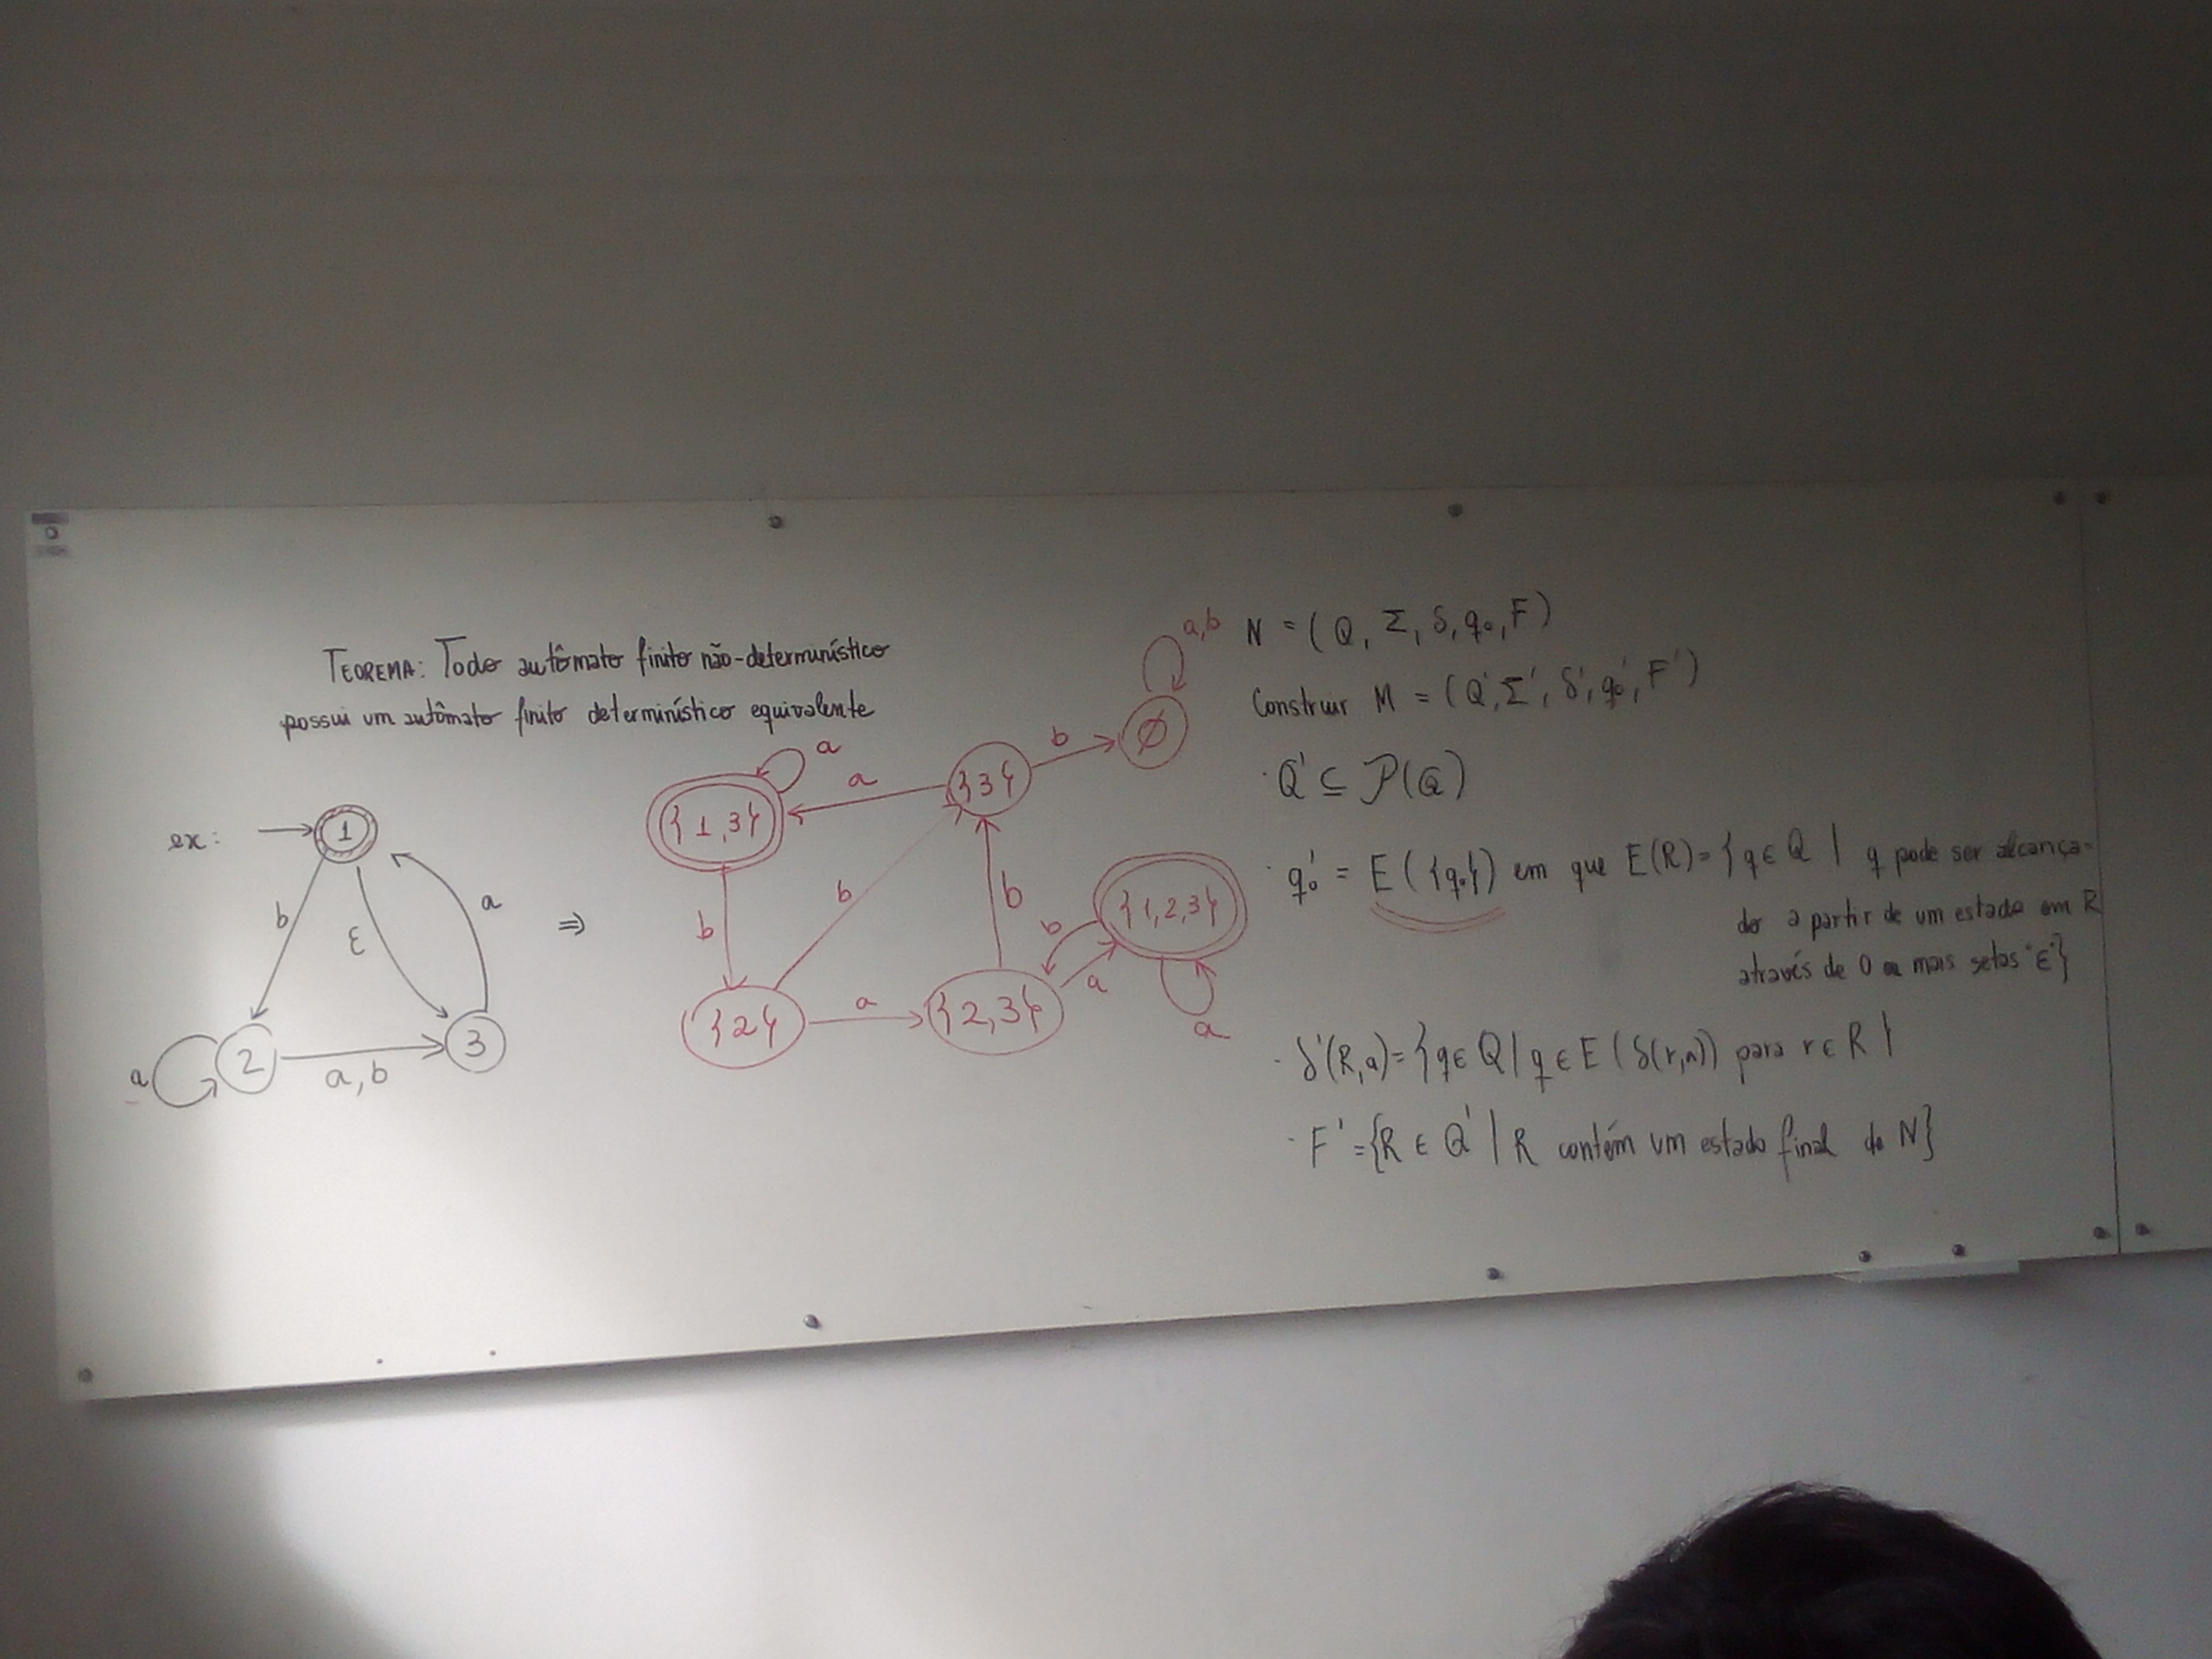 TEOREMA: Todo autômato finito não-determinístico
possui um autômato finito determinístico equivalente
ex:
1
b
ε
a
a
2
a,b
3
⇒
{1,3}
a
a
{3}
b
∅
a,b
b
b
b
{2}
a
{2,3}
b
a
{1,2,3}
a
N = (Q, Σ, δ, q₀, F)
Construir M = (Q', Σ', δ', q₀', F')
· Q' ⊆ P(Q)
· q₀' = E({q₀}) em que E(R) = {q ∈ Q | q pode ser alcança-
do a partir de um estado em R
através de 0 ou mais setas "ε"}
· δ'(R,a) = {q ∈ Q | q ∈ E(δ(r,a)) para r ∈ R}
· F' = {R ∈ Q' | R contém um estado final de N}